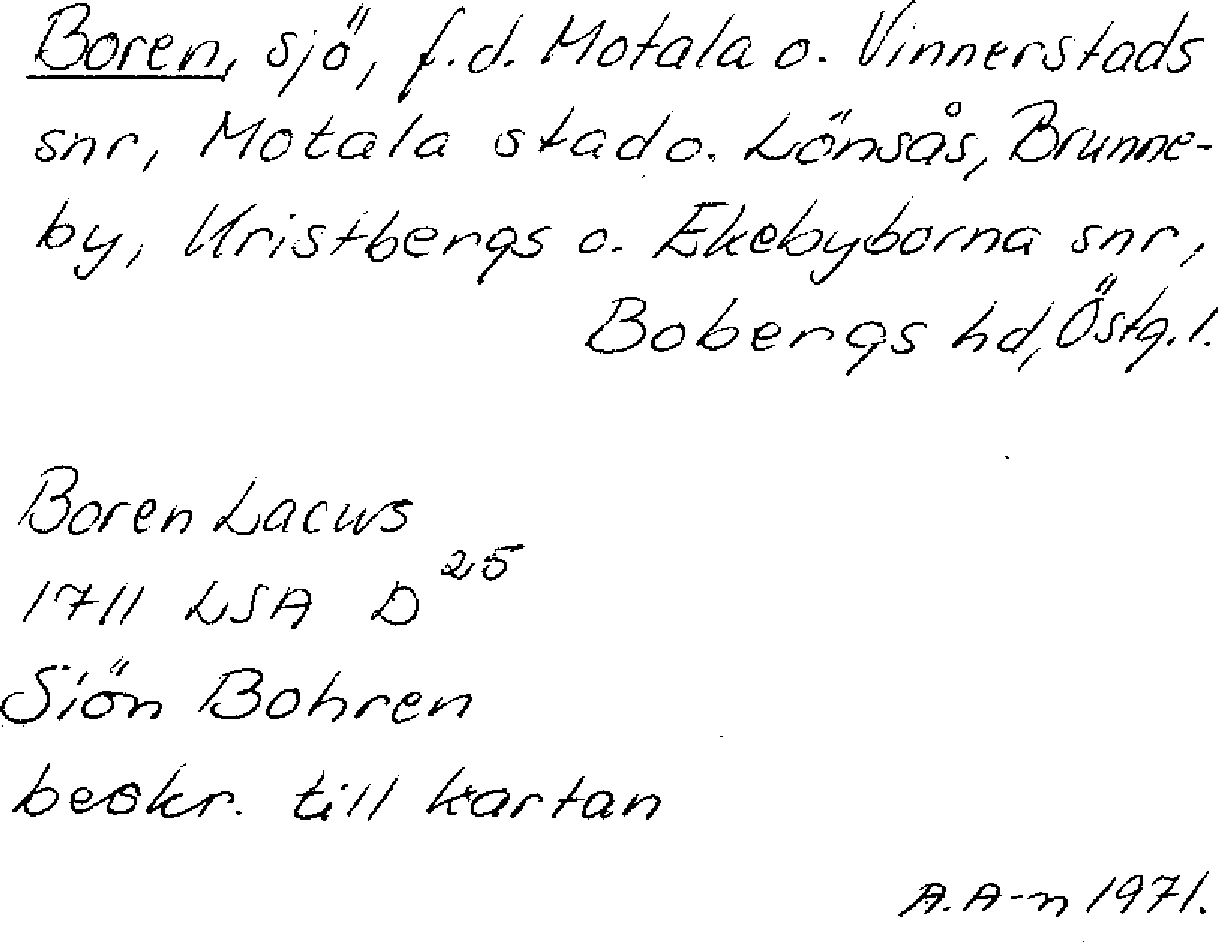 Boren, sjö, f.d. Motala o. Vinnerstads
snr, Motala stad o. Lönsås, Brunne-
by, Kristbergs o. Ekebyborna snr,
Bobergs hd, Östg. l.
Boren Lacus
1711 LSA D 25
Siön Bohren
beskr. till kartan
A. A-n 1971.